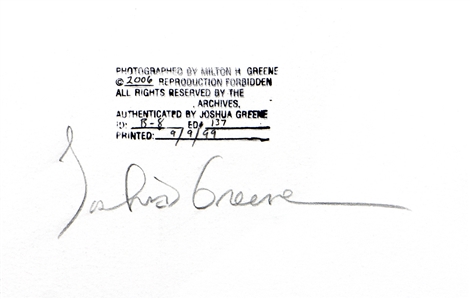 PHOTOGRAPHED BY MILTON H. GREENE
© 2006 REPRODUCTION FORBIDDEN
ALL RIGHTS RESERVED BY THE
ARCHIVES,
AUTHENTICATED BY JOSHUA GREENE
ID: B-8 ED# 137
PRINTED: 9/9/99
Joshua Greene